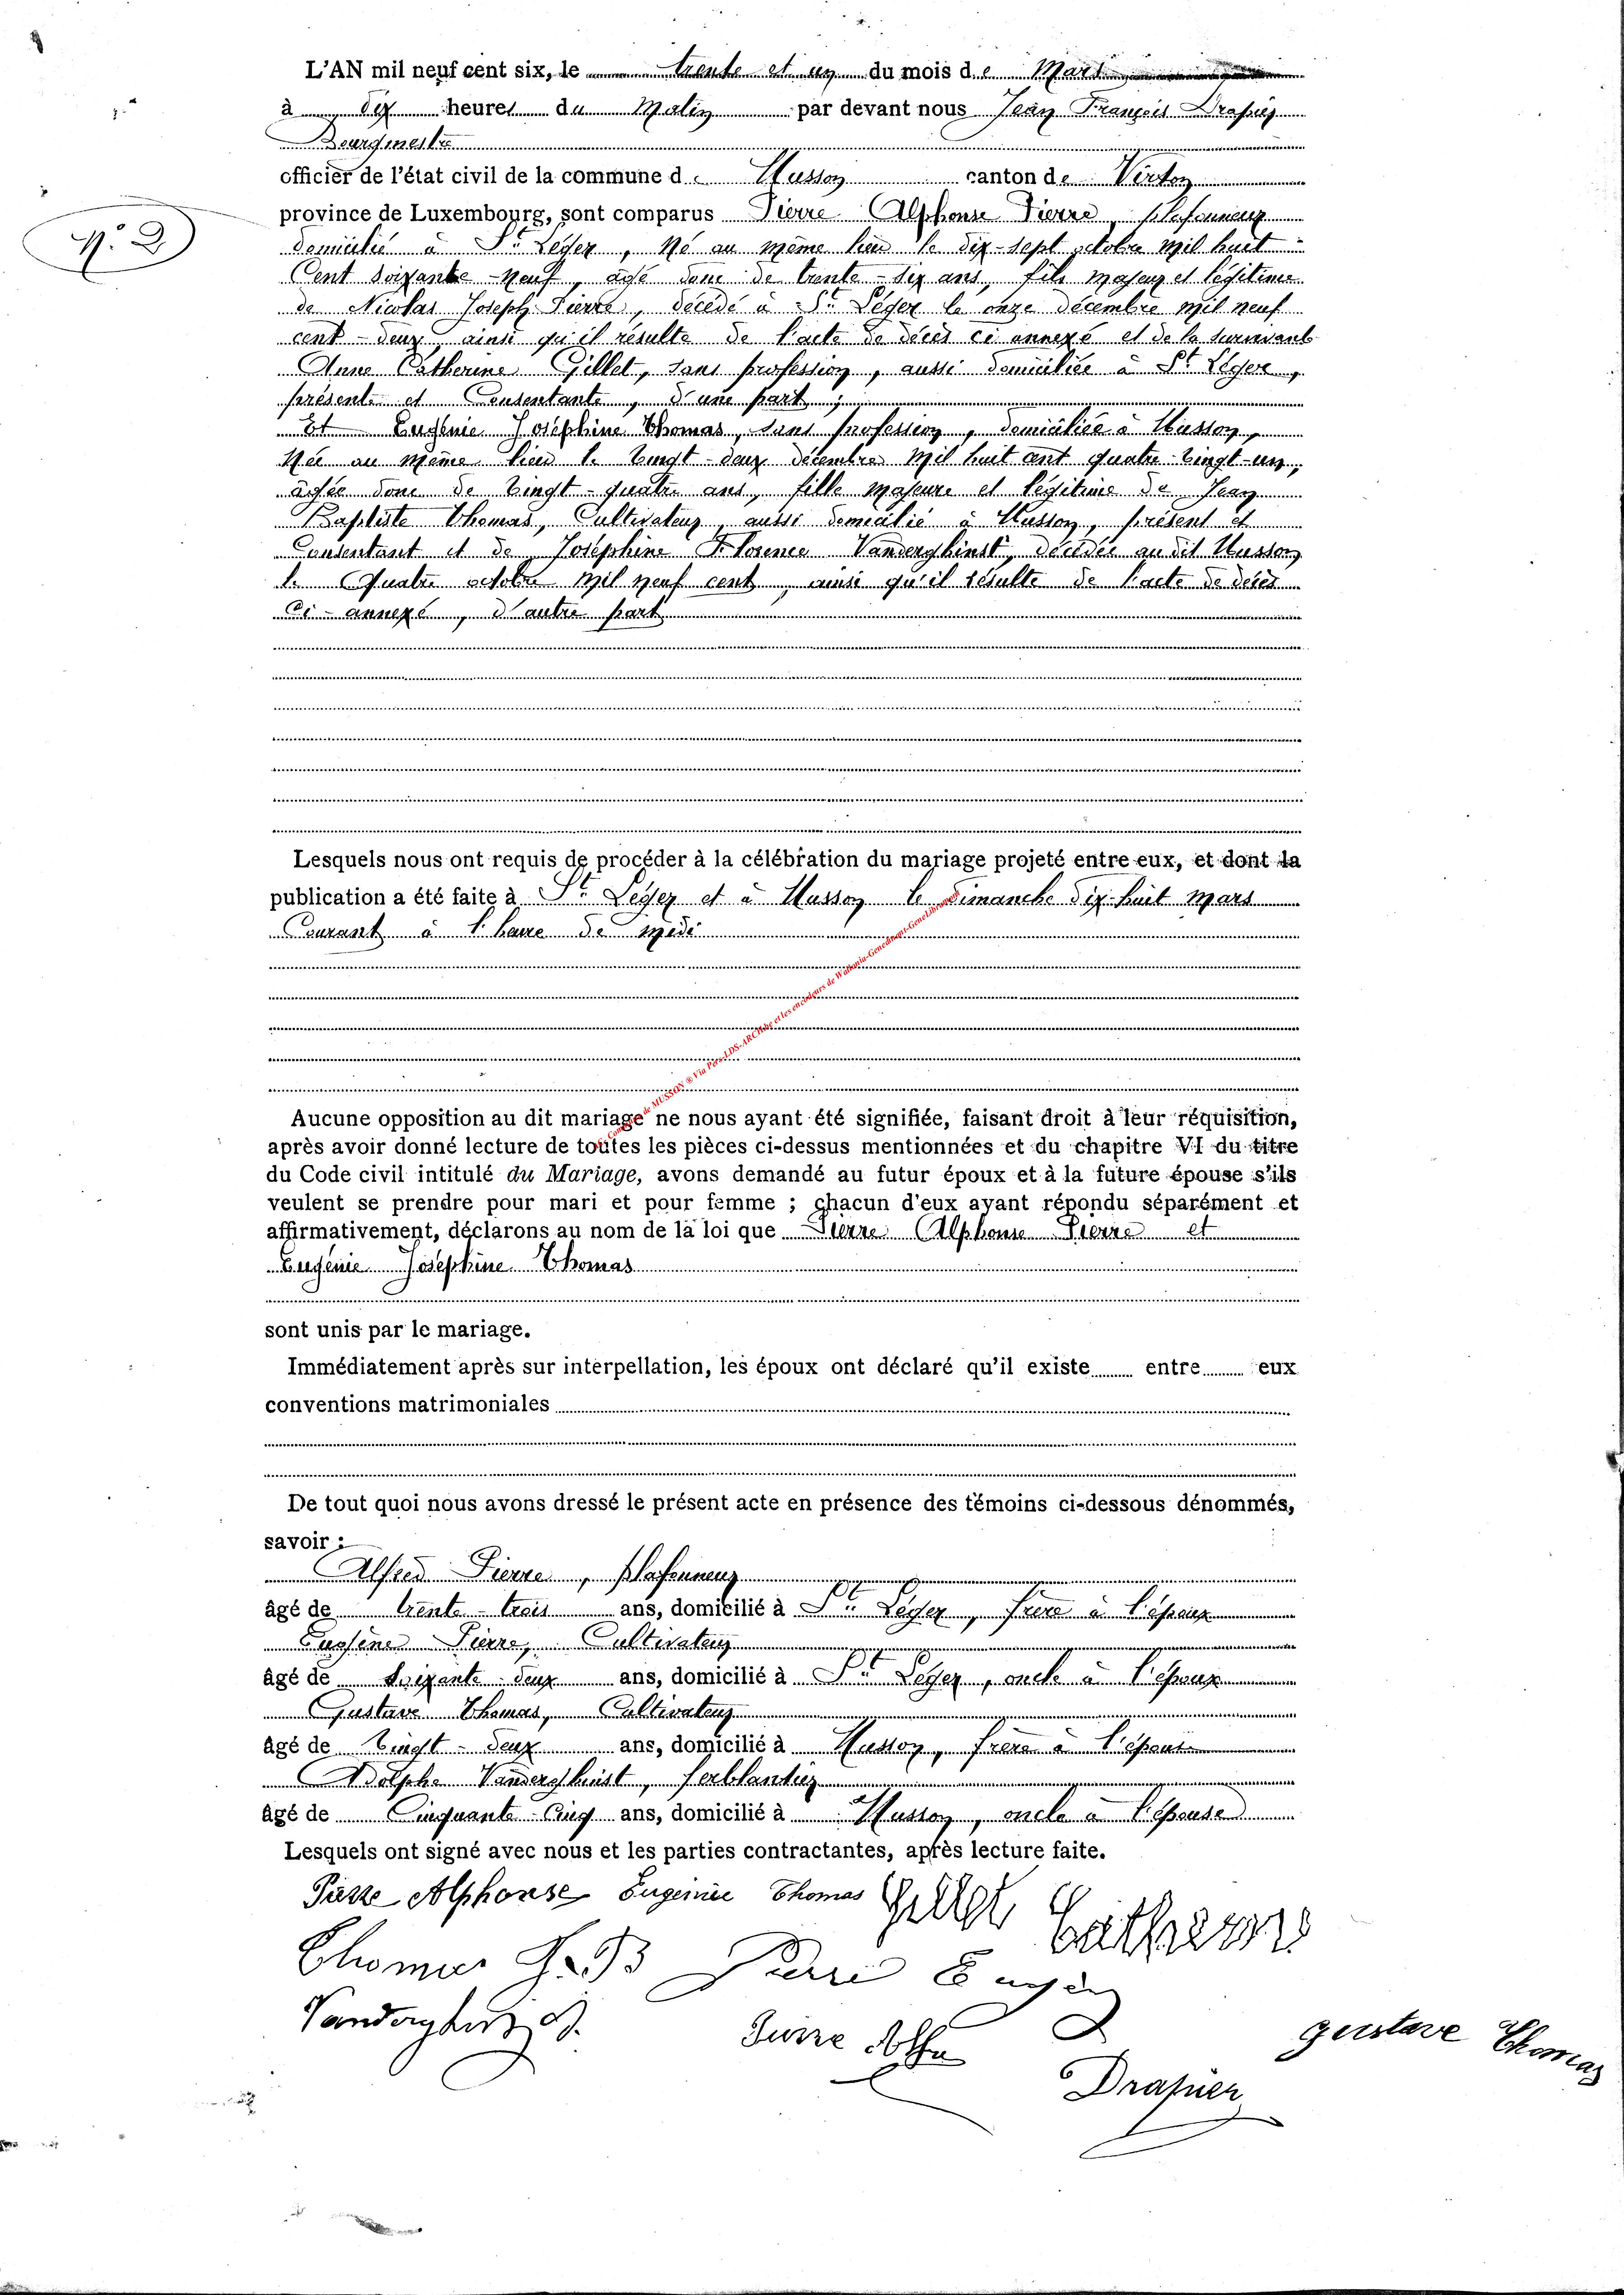 L'AN mil neuf cent six, le trente et un du mois de Mars
à dix heures du Matin par devant nous Jean François Drapier
Bourgmestre
officier de l'état civil de la commune de Musson canton de Virton
N.° 2
province de Luxembourg, sont comparus Pierre Alphonse Pierre, plafonneur
domicilié à St Léger, né au même lieu le dix-sept octobre mil huit
Cent soixante-neuf, âgé donc de trente-six ans, fils majeur et légitime
de Nicolas Joseph Pierre, décédé à St Léger le onze décembre mil neuf
cent-deux, ainsi qu'il résulte de l'acte de décès ci annexé et de la survivante
Anne Catherine Gillet, sans profession, aussi domiciliée à St Léger,
présente et Consentante, d'une part ;
Et Eugénie Joséphine Thomas, sans profession, domiciliée à Musson,
Née au même lieu le vingt-deux décembre mil huit cent quatre-vingt-un,
âgée donc de vingt-quatre ans, fille majeure et légitime de Jean
Baptiste Thomas, Cultivateur, aussi domicilié à Musson, présent et
Consentant et de Joséphine Florence Vanderghinst, décédée au dit Musson
le Quatre octobre mil neuf cent, ainsi qu'il résulte de l'acte de décès
Ci-annexé, d'autre part
Lesquels nous ont requis de procéder à la célébration du mariage projeté entre eux, et dont la
publication a été faite à St Léger et à Musson le dimanche dix-huit mars
Courant à l'heure de midi
Commune de MUSSON ® Via Pers-LDS-ARCH.be et les encodeurs de Wallonia-Genedinant-GeneLibramont
Aucune opposition au dit mariage ne nous ayant été signifiée, faisant droit à leur réquisition,
après avoir donné lecture de toutes les pièces ci-dessus mentionnées et du chapitre VI du titre
du Code civil intitulé du Mariage, avons demandé au futur époux et à la future épouse s'ils
veulent se prendre pour mari et pour femme ; chacun d'eux ayant répondu séparément et
affirmativement, déclarons au nom de la loi que Pierre Alphonse Pierre et
Eugénie Joséphine Thomas
sont unis par le mariage.
Immédiatement après sur interpellation, les époux ont déclaré qu'il existe entre eux
conventions matrimoniales
De tout quoi nous avons dressé le présent acte en présence des témoins ci-dessous dénommés,
savoir :
Alfred Pierre, plafonneur
âgé de trente-trois ans, domicilié à St Léger, frère à l'époux
Eugène Pierre, Cultivateur
âgé de Soixante-deux ans, domicilié à St Léger, oncle à l'époux
Gustave Thomas, Cultivateur
âgé de vingt-deux ans, domicilié à Musson, frère à l'épouse
Adolphe Vanderghinst, ferblantier
âgé de Cinquante-Cinq ans, domicilié à Musson, oncle à l'épouse
Lesquels ont signé avec nous et les parties contractantes, après lecture faite.
Pierre Alphonse Eugénie Thomas Gillet Catherine
Thomas J. B Pierre Eugène
Vanderghinst A. Pierre Gustave Thomas
Drapier